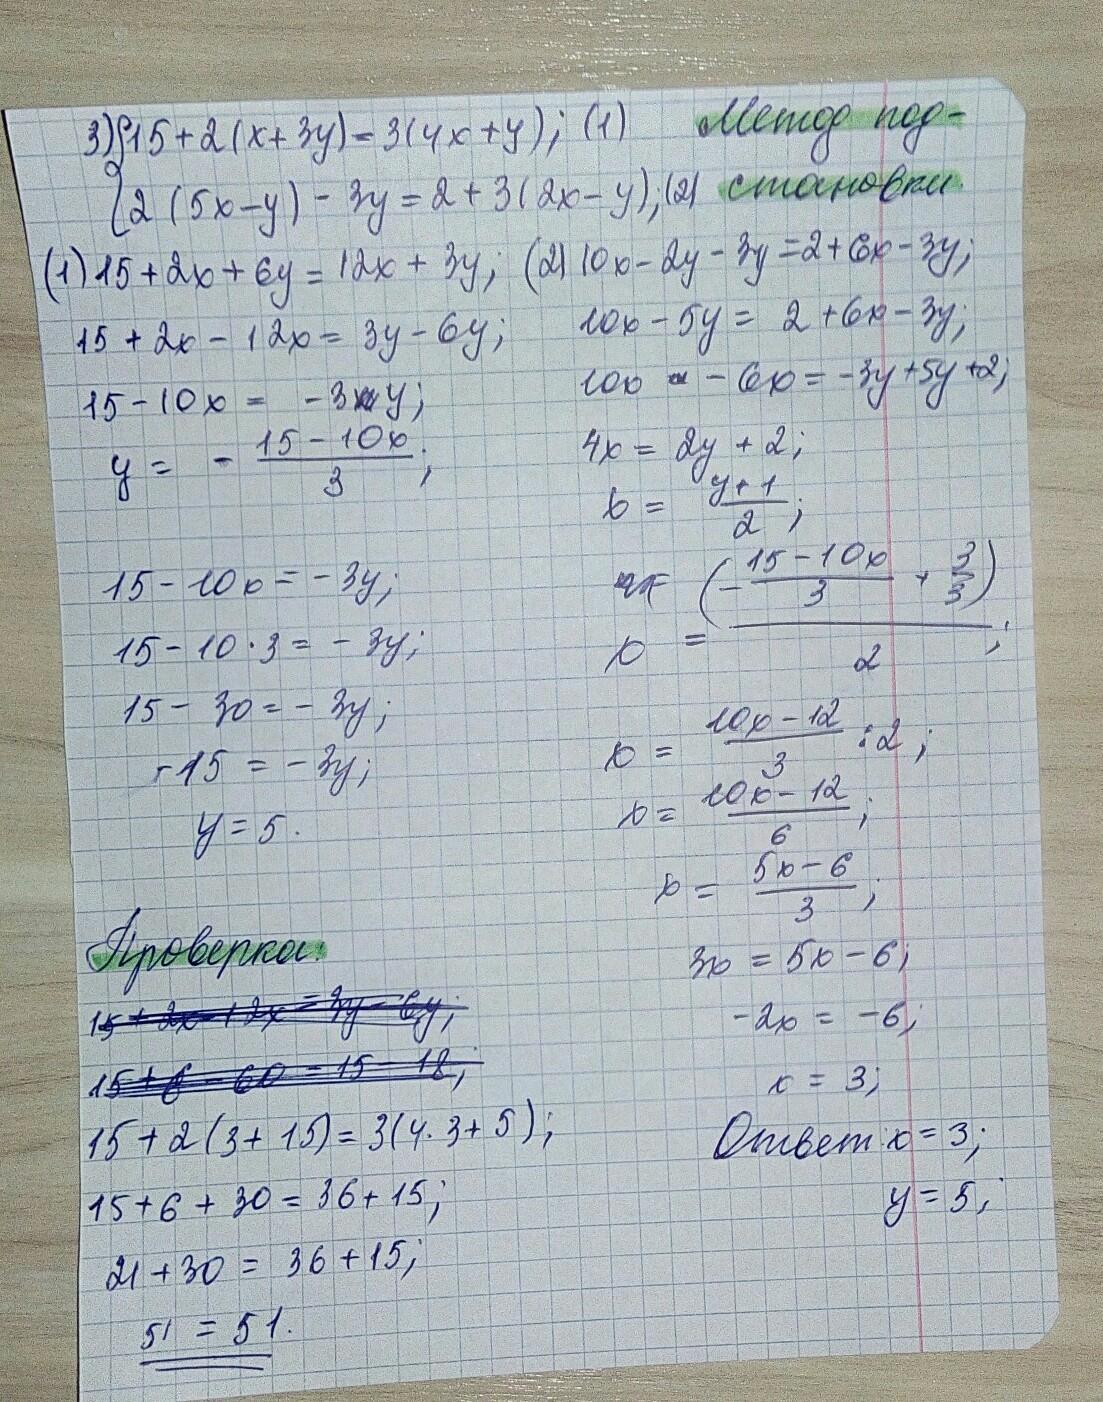 3) { 15 + 2(x + 3y) = 3(4x + y); (1) Метод под-
{ 2(5x - y) - 3y = 2 + 3(2x - y); (2) становки
(1) 15 + 2x + 6y = 12x + 3y;
15 + 2x - 12x = 3y - 6y;
15 - 10x = -3y;
y = - \frac{15 - 10x}{3};
15 - 10x = -3y;
15 - 10 · 3 = -3y;
15 - 30 = -3y;
-15 = -3y;
y = 5.
(2) 10x - 2y - 3y = 2 + 6x - 3y;
10x - 5y = 2 + 6x - 3y;
10x - 6x = -3y + 5y + 2;
4x = 2y + 2;
x = \frac{y + 1}{2};
x = \frac{(-\frac{15 - 10x}{3} + \frac{3}{3})}{2};
x = \frac{10x - 12}{3} : 2;
x = \frac{10x - 12}{6};
x = \frac{5x - 6}{3};
3x = 5x - 6;
-2x = -6;
x = 3;
Ответ: x = 3;
y = 5;
Проверка:
15 + 2x - 12x = 3y - 6y;
15 + 6 - 60 = 15 - 18;
15 + 2(3 + 15) = 3(4 · 3 + 5);
15 + 6 + 30 = 36 + 15;
21 + 30 = 36 + 15;
51 = 51.